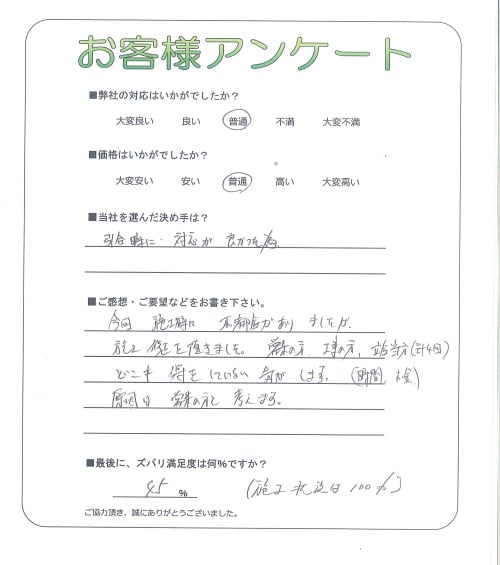 お客様アンケート
■弊社の対応はいかがでしたか？
大変良い 良い 普通 不満 大変不満
■価格はいかがでしたか？
大変安い 安い 普通 高い 大変高い
■当社を選んだ決め手は？
引合時に 対応が 良かった為
■ご感想・ご要望などをお書き下さい。
今回 施工時に 不都合がありましたが、
施工修正を頂きました。 営業の方、工事の方、 当方(計4回)
どこも 得をしていない 気がします。 (時間、お金)
原因は 営業の方と 考えます。
■最後に、ズバリ満足度は何％ですか？
45 ％ (施工状況は100％)
ご協力頂き、誠にありがとうございました。